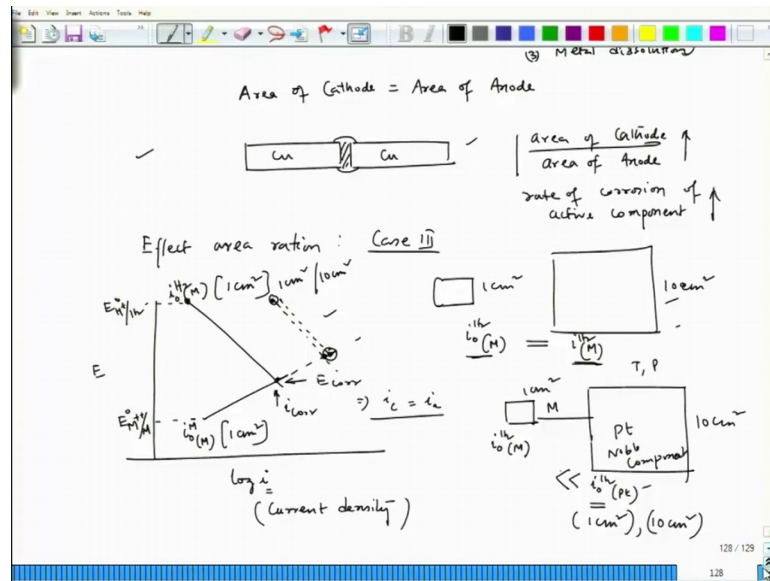 File Edit View Insert Actions Tools Help
(3) Metal dissolution
Area of Cathode = Area of Anode
Cu Cu
area of Cathode
area of Anode ↑
rate of corrosion of
active component ↑
Effect area ration : Case III
i₀^H₂(M) [1cm²] 1cm² / 10cm²
E
E corr
i corr
⇒ i_c = i_a
i₀^M(M) [1cm²]
log i
(Current density)
1cm²
10cm²
i₀^H₂(M) = i₀^H₂(M)
T, P
1cm²
M
Pt
10cm²
i₀^H₂(M)
<< i₀^H₂(Pt) -
(1cm²), (10cm²)
128 / 129
128